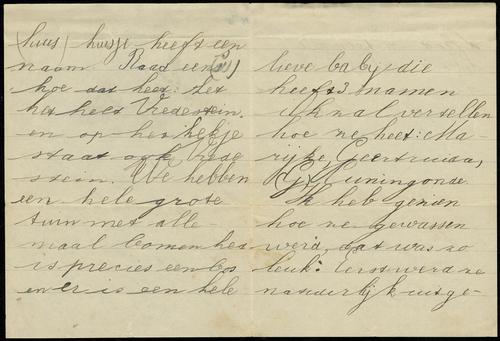 (huis) huisje heeft een
naam Raad eens
hoe dat heet: zet
het heet Vredestein.
en op het hekje
staat ook Vrede
stein. We hebben
een hele grote
tuin met alle-
maal bomen het
is precies een bos
en er is een hele
lieve baby die
heeft 3 namen
ik zal vertellen
hoe ze heet: Ma-
rijke, Geertruida,
Cuningonde.
Ik heb gezien
hoe ze gewassen
werd, dat was zo
leuk: Eerst werd ze
natuurlijk uitge-